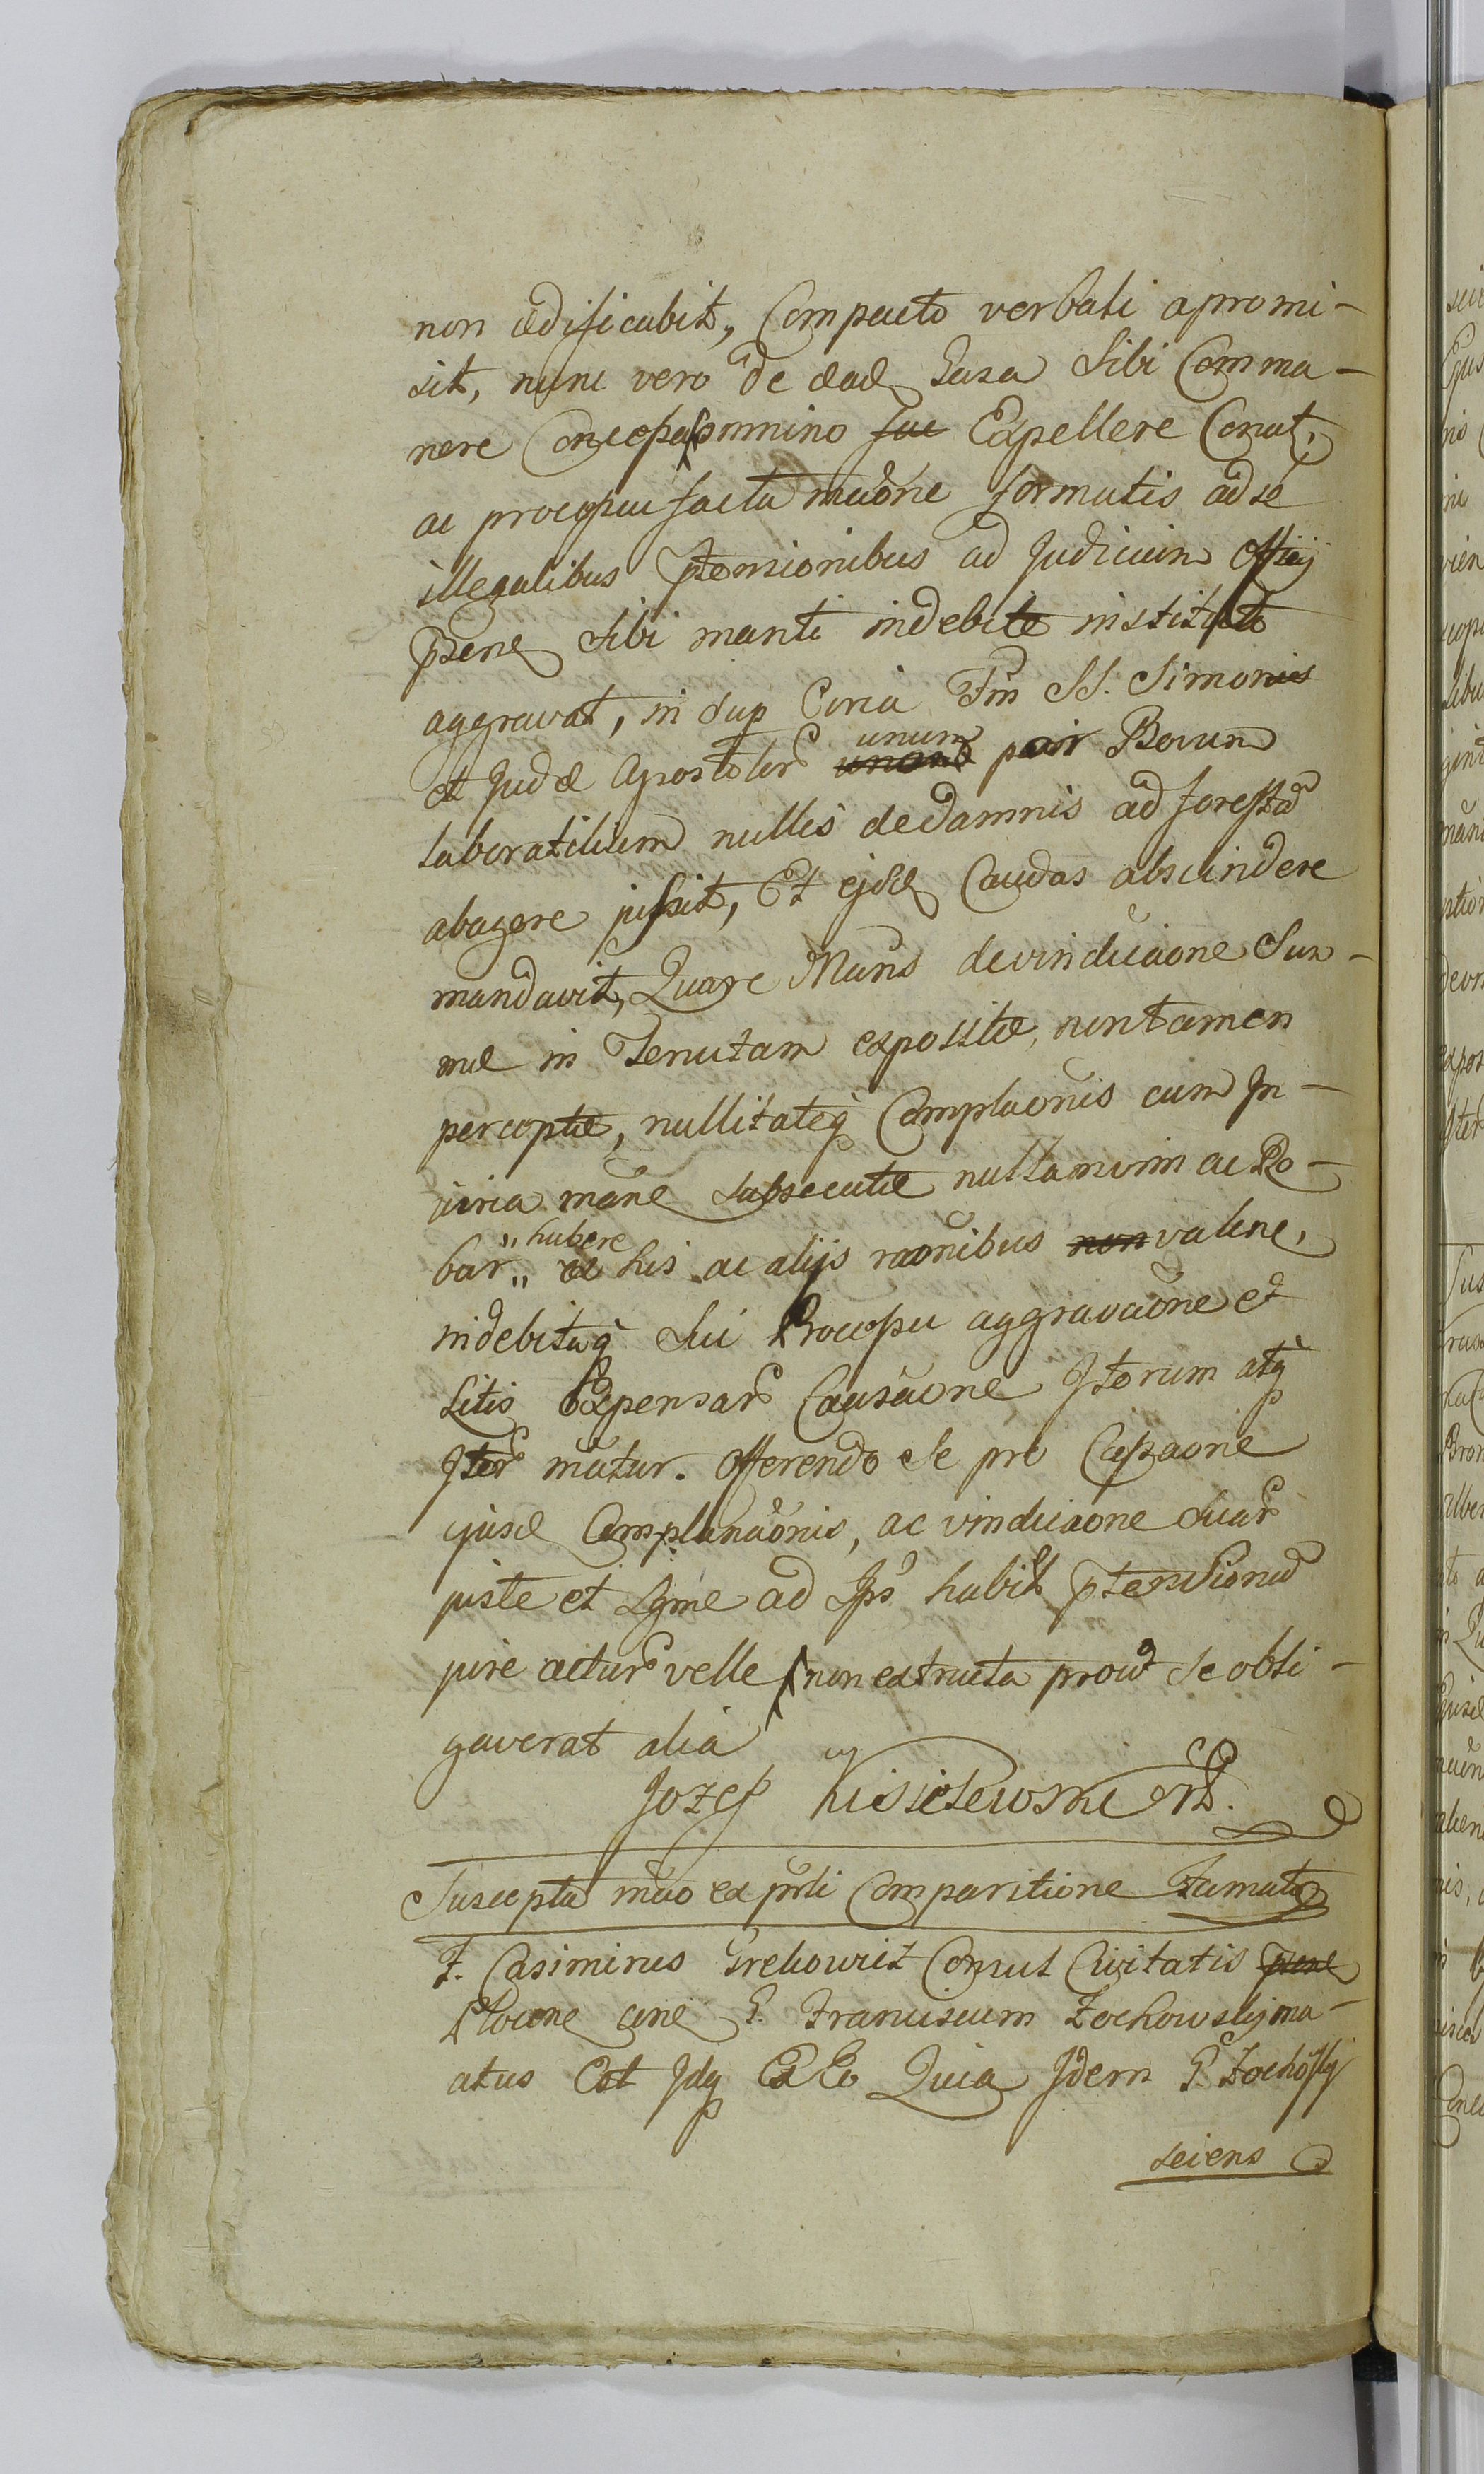 non ædificabit, Compacto verbali apromi-
sit, nunc vero de ead Casa Sibi Comma-
nere Concepta omnino suc Expellere Conat,
ac procopiu facta mãone formatis ad se
illegalibus ptensionibus ad Judicium Officij
psene Sibi manti indebite instituto
aggravat, in sup Circa Fm SS. Simonis
et Judæ Apostolor unum unum par Bovum
laboratilium nullis dedamnis ad forestã
abagere jussit, Et ejsd Caudas abscindere
mandavit, Quare Mans devindicaone Sum-
mæ in Tenutam expositæ, nontamen
perceptæ, nullitateq Complaonis cum In-
juria mane subsecutæ nullamvim ac Ro-
bar „habere„ ex his ac alijs raonibus non valene,
indebitaq Sui Procopiu aggravaone et
Litis Expensar Causaone Iterum atq
Iter matur. Offerendo Se pro Cassaone
ejusd Complanaonis, ac vindicaone Suar
juste et Lgme ad Ips habit ptensionu
jure actur velle non extructa prout Se obli-
gaverat alia
Jozef Kisielewski mp.
Suscepta mão ex psnti Comparitione
F. Casimirus Grehowicz Consul Civitatis psene
Plocene cone G. Franciscum Zochowskij ma-
atus Est Idq Ex Eo Quia Idem G. Zochosky
sciens